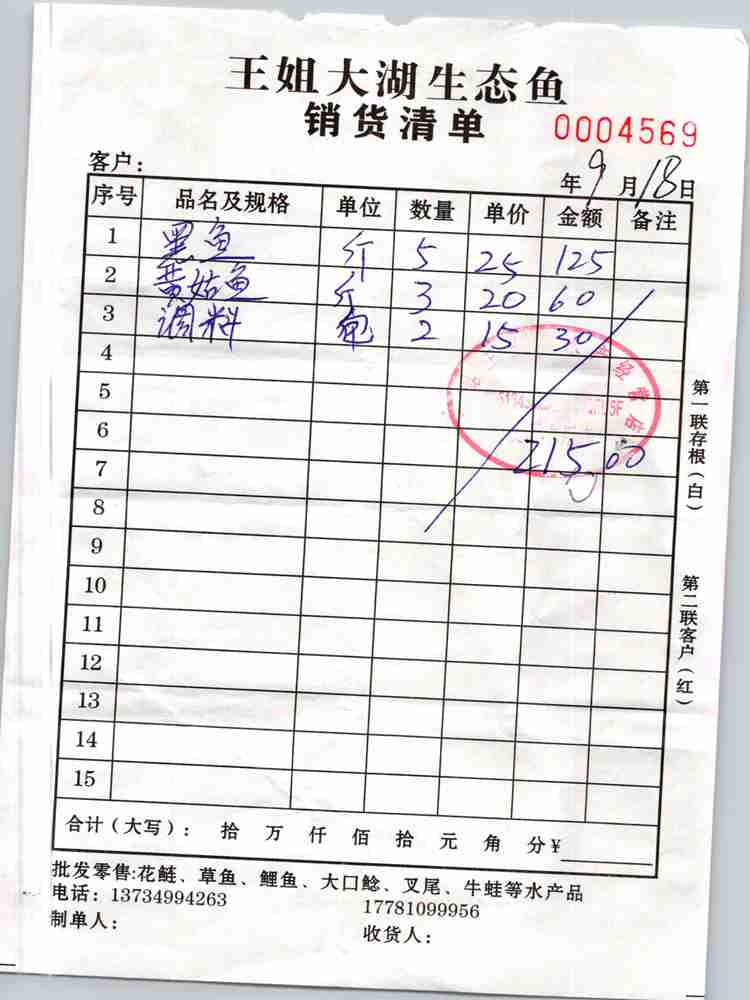 王姐大湖生态鱼
销货清单 0004569
客户： 年9月18日
序号 品名及规格 单位 数量 单价 金额 备注
1 黑鱼 斤 5 25 125
2 黄姑鱼 斤 3 20 60
3 调料 包 2 15 30
4
5
6 215.00
7
8
9
10
11
12
13
14
15
经营店
第一联存根（白）
第二联客户（红）
合计（大写）： 拾 万 仟 佰 拾 元 角 分¥
批发零售:花鲢、草鱼、鲤鱼、大口鲶、叉尾、牛蛙等水产品
电话：13734994263 17781099956
制单人： 收货人：